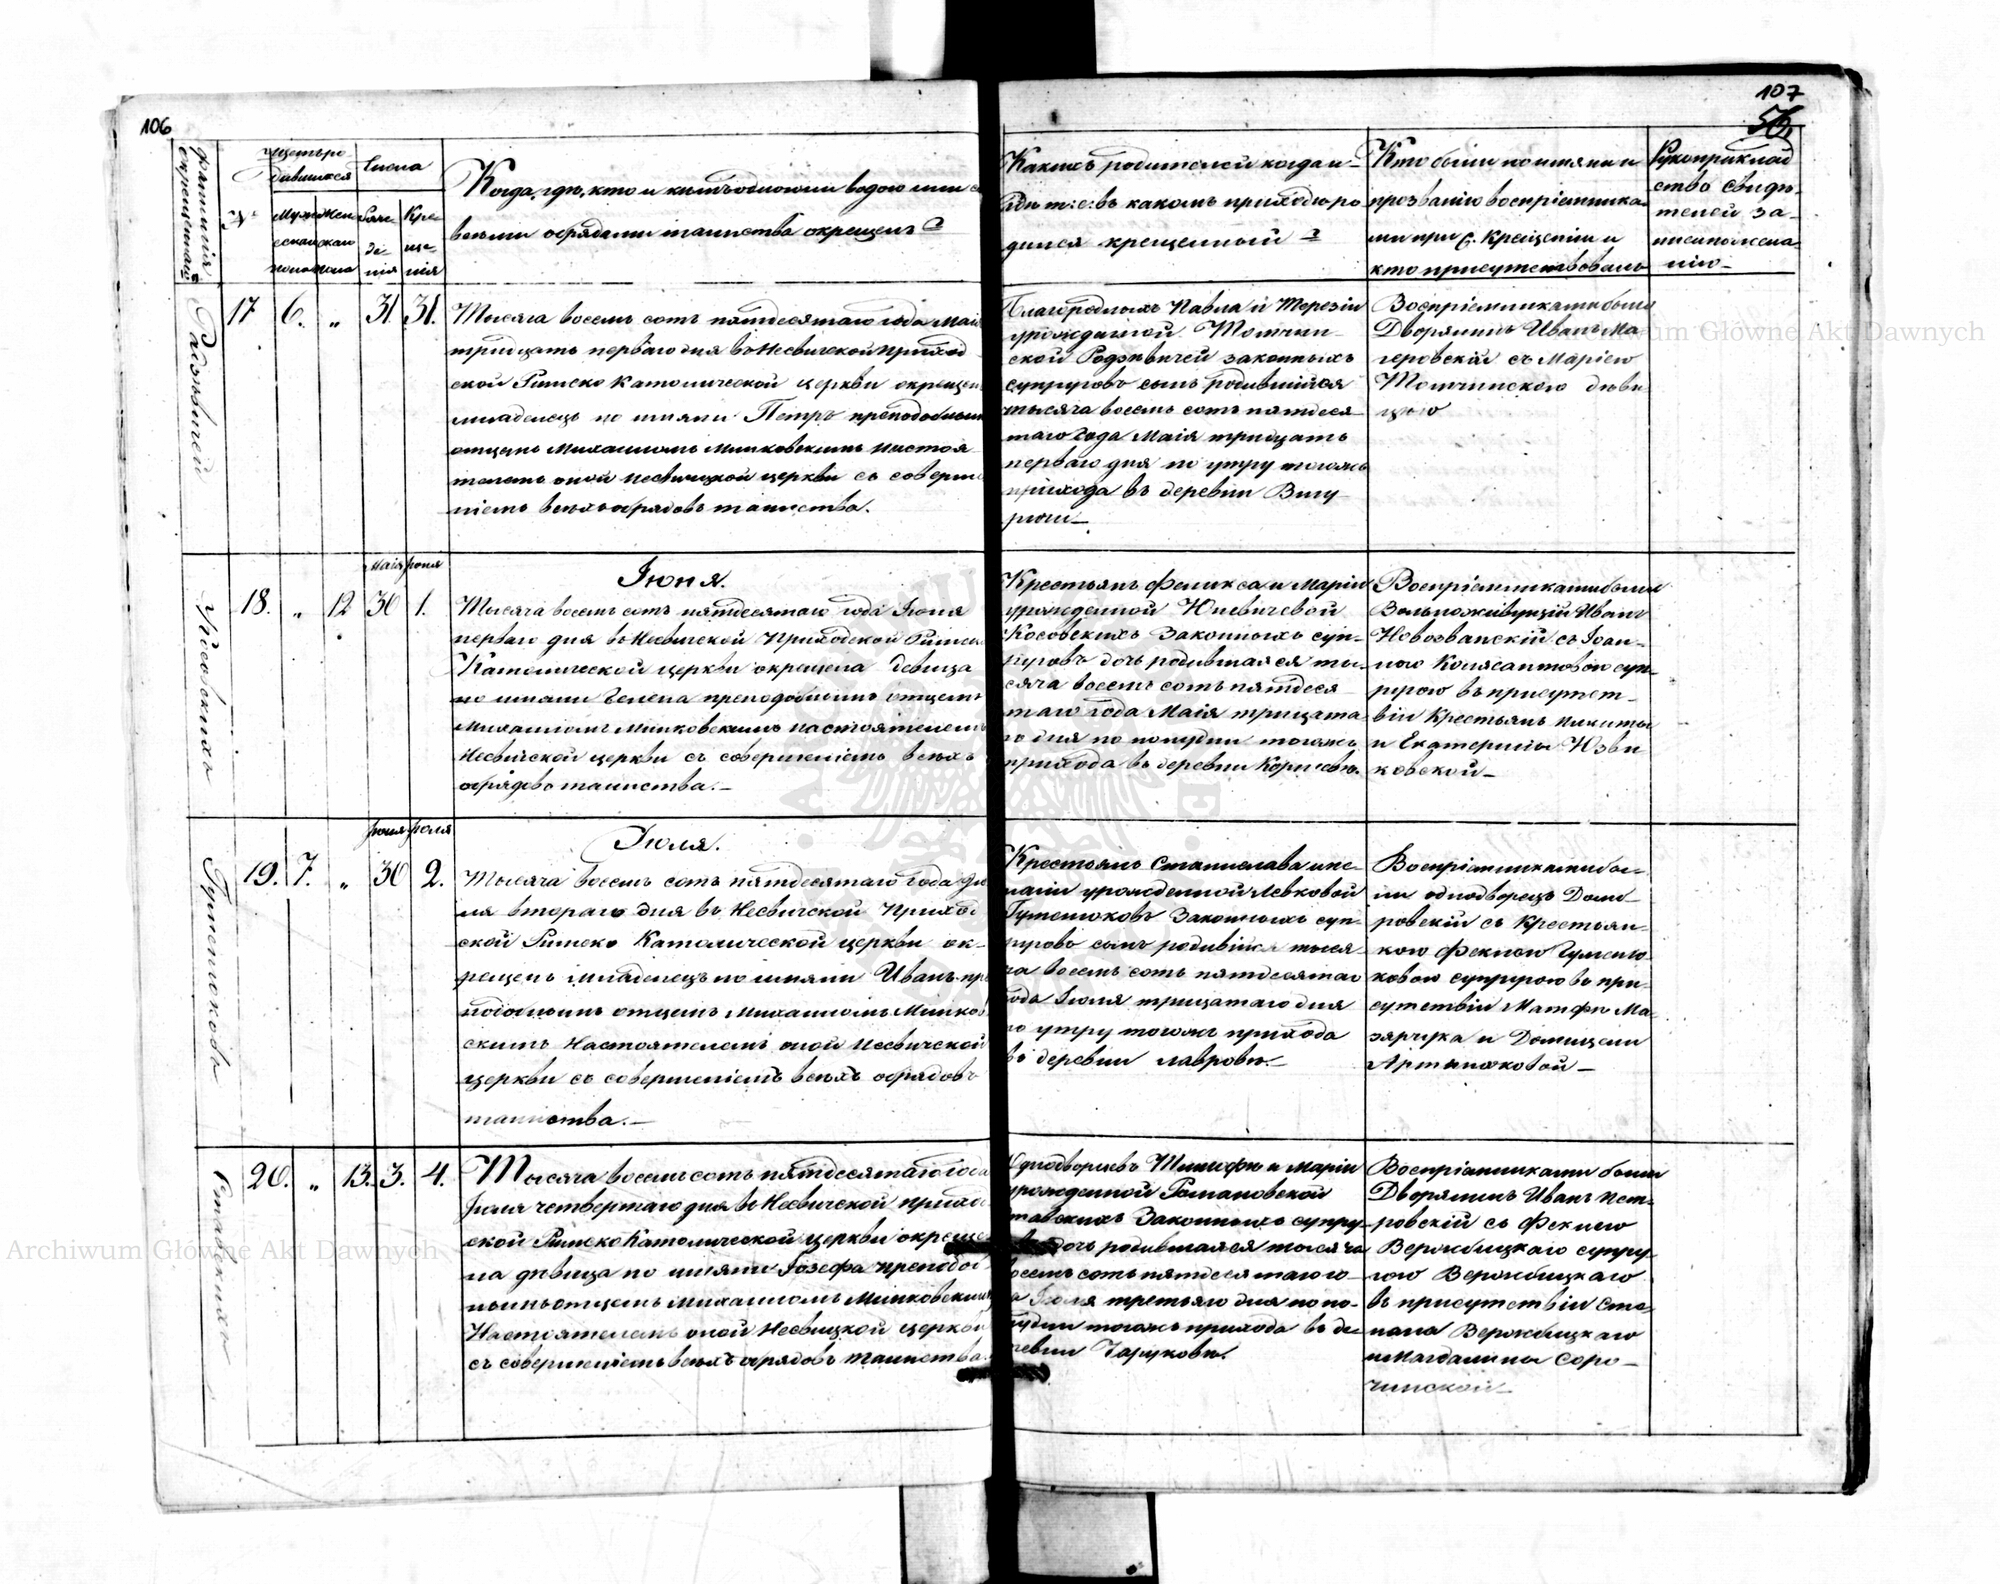 106
107
56.
Фамилія окрещеннаго
№
Число родившихся
Мужескаго пола
Женскаго пола
Числа
Рожденія
Крещенія
Когда, гдѣ, кто и кѣмъ одною ли водою или со
всѣми обрядами таинства окрещенъ?
Какихъ родителей когда и
гдѣ т: е: въ какомъ приходѣ ро
дился крещенный?
Кто были по имяни и
прозванію воспріемника
ми при С. Крещеніи и
кто присутствовалъ
Рукоприклад
ство свидѣ-
телей за-
писи по жела-
нію
17 6. „ 31 31.
Тысяча восемь сотъ пятдесятаго года Маія
тридцать перваго дня въ Несвичской Приход
ской Римско Католической церкви окрещен
младенецъ по имяни Петръ преподобным
отцемъ Михаиломъ Минковскимъ Настоя
телемъ оной Несвицкой церкви съ соверше
ніемъ всѣхъ обрядовъ таинства.
Благородныхъ Павла и Терезіи
урожденной Толчин-
ской законныхъ
супруговъ сынъ родившійся
тысяча восемь сотъ пятдеся
таго года Маія тридцать
перваго дня по утру тогожъ
прихода въ деревни
Воспріемниками были
Дворянинъ Иванъ Ма
геровскій съ Маріею
Толчинскою дѣви
цею
маія іюня
Іюня.
18. „ 12 30 1.
Тысяча восемь сотъ пятдесятаго года Іюня
перваго дня въ Несвичской Приходской Римско
Католической церкви окрещена девица
по имяни Гелена преподобнымъ отцемъ
Михаиломъ Минковскимъ Настоятелемъ
Несвичской церкви съ совершеніемъ всѣхъ
обрядовъ таинства.
Крестьянъ Феликса и Маріи
урожденной
Косовскихъ Законныхъ суп-
руговъ дочь родившаяся ты-
сяча восемь сотъ пятдеся
таго года Маія трицата
го дня по полудни тогожъ
прихода въ деревни
Воспріемниками были
Вольноживущій Иванъ
Новозванскій съ Іоан-
ною суп-
ругою въ присутст-
віи Крестьянъ Никиты
и Екатерины
ковской
Іюня Іюля
Іюля.
19. 7. „ 30 2.
Тысяча восемь сотъ пятдесятаго года Ію
ля втораго дня въ Несвичской Приход
ской Римско Католической церкви ок-
рещенъ младенецъ по имяни Иванъ пре
подобнымъ отцемъ Михаиломъ Минков
скимъ Настоятелемъ оной Несвичской
церкви съ совершеніемъ всѣхъ обрядовъ
таинства.
Крестьянъ Станислава и
урожденной Левковой
Гуменюковъ Законныхъ суп-
руговъ сынъ родившійся тыся
ча восемь сотъ пятдесятаго
года Іюня трицатаго дня
по утру тогожъ прихода
въ деревни Лавровѣ.
Воспріемниками бы-
ли однодворецъ Домб-
ровскій съ Крестьян-
кою Феклою Гуменю
ковою супругою въ при-
сутствіи Матфѣя Ма-
зярчука и Домицели

20. „ 13. 3. 4.
Тысяча восемь сотъ пятдесятаго года
Іюля четвертаго дня въ Несвичской приход
ской Римско Католической церкви окреще
на дѣвица по имяни Іозефа преподоб
нымъ отцемъ Михаиломъ Минковскимъ
Настоятелемъ оной Несвицкой церкви
съ совершеніемъ всѣхъ обрядовъ таинства.
Однодворцевъ и Маріи
урожденной Романовской
Ставскихъ Законныхъ супру
говъ дочь родившаяся тысяча
восемь сотъ пятдесятаго го-
да Іюля третьяго дня по по-
лудни тогожъ прихода въ де
ревни Чаруковѣ.
Воспріемниками были
Дворянинъ Иванъ Пет-
ровскій съ Феклою
Вержбицкаго супру-
гою Вержбицкаго
въ присутствіи Сте
пана Вержбицкаго
и Магдалины Соро-
чинской
Косовскихъ
Гуменюковъ
Ставскихъ
Archiwum Główne Akt Dawnych
Archiwum Główne Akt Dawnych